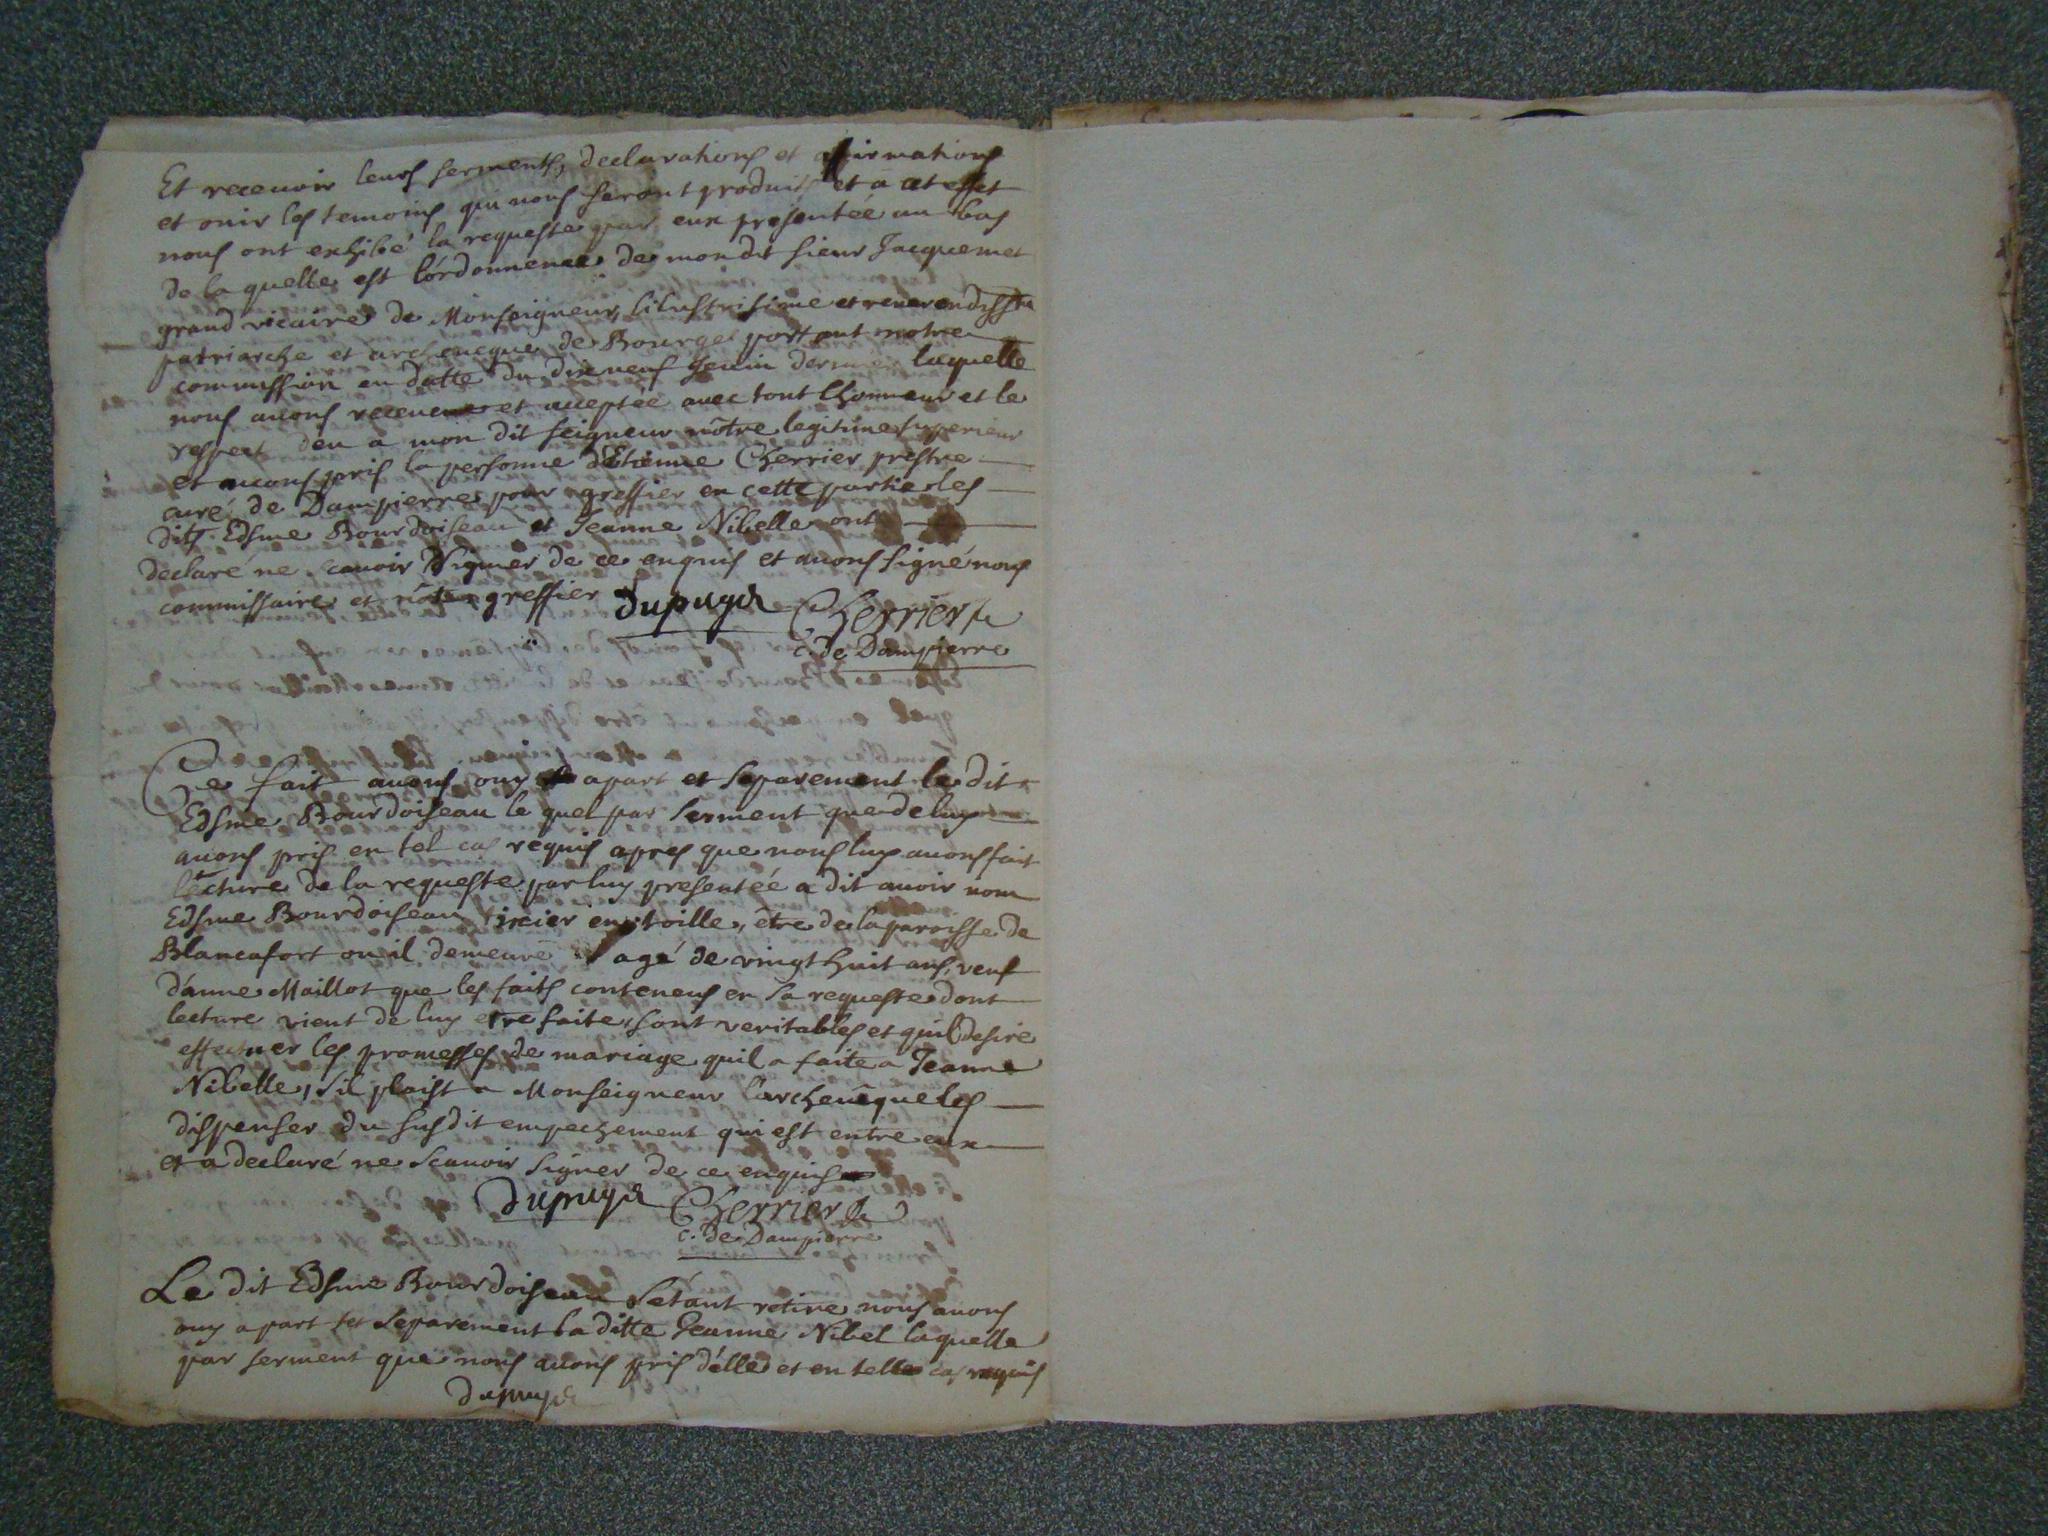 Et receuoir leurs serments, declarations et affirmations
et ouir les temoins qui nous seront produits et a cet effet
nous ont exhibé la requeste par eux presentée au bas
de la quelle est l'ordonnence de mon dit sieur Jacquemet
grand vicaire de Monseigneur lilustrisime et reuerendissime
patriarche et archeueque de Bourge portant notre
commission en datte du dixneuf Jeuin dernier laquelle
nous auons receue et acceptée auec tout lhonneur et le
respect deu a mon dit seigneur nôtre legitime superieur
et auons pris la personne dEtienne Cherrier prestre
curé de Dampierre pour greffier en cette partie les
dits Edsme Bourdoiseau et Jeanne Nibelle ont
declaré ne scauoir signer de ce enquis et auons signé nous
commissaire et nôtre greffier Dupuys Cherrier
c. de Dampierre
Ce fait auons ouy apart et separement le dit
Edsme Bourdoiseau le quel par serment que de luy
auons pris en tel cas requis apres que nous luy auons fait
lecture de la requeste par luy presentée a dit auoir nom
Edsme Bourdoiseau tixier en toille, être de la paroisse de
Blancafort ou il demeure agé de vingt huit ans, veuf
d'anne Maillot que les faits conteneus en sa requeste dont
lecture vient de luy etre faite, sont veritables et quil desire
effectuer les promesses de mariage quil a faite a Jeanne
Nibelle, s'il plaist a Monseigneur l'archeuêque les
dispenser du susdit empechement qui est entre eux
et a declaré ne scauoir signer de ce enquis
Dupuys Cherrier
c. de Dampierre
Le dit Edsme Bourdoiseau sétant retire nous auons
ouy apart et separement la ditte Jeanne Nibel laquelle
par serment que nous auons pris d'elle et en telle cas requis
Dupuys